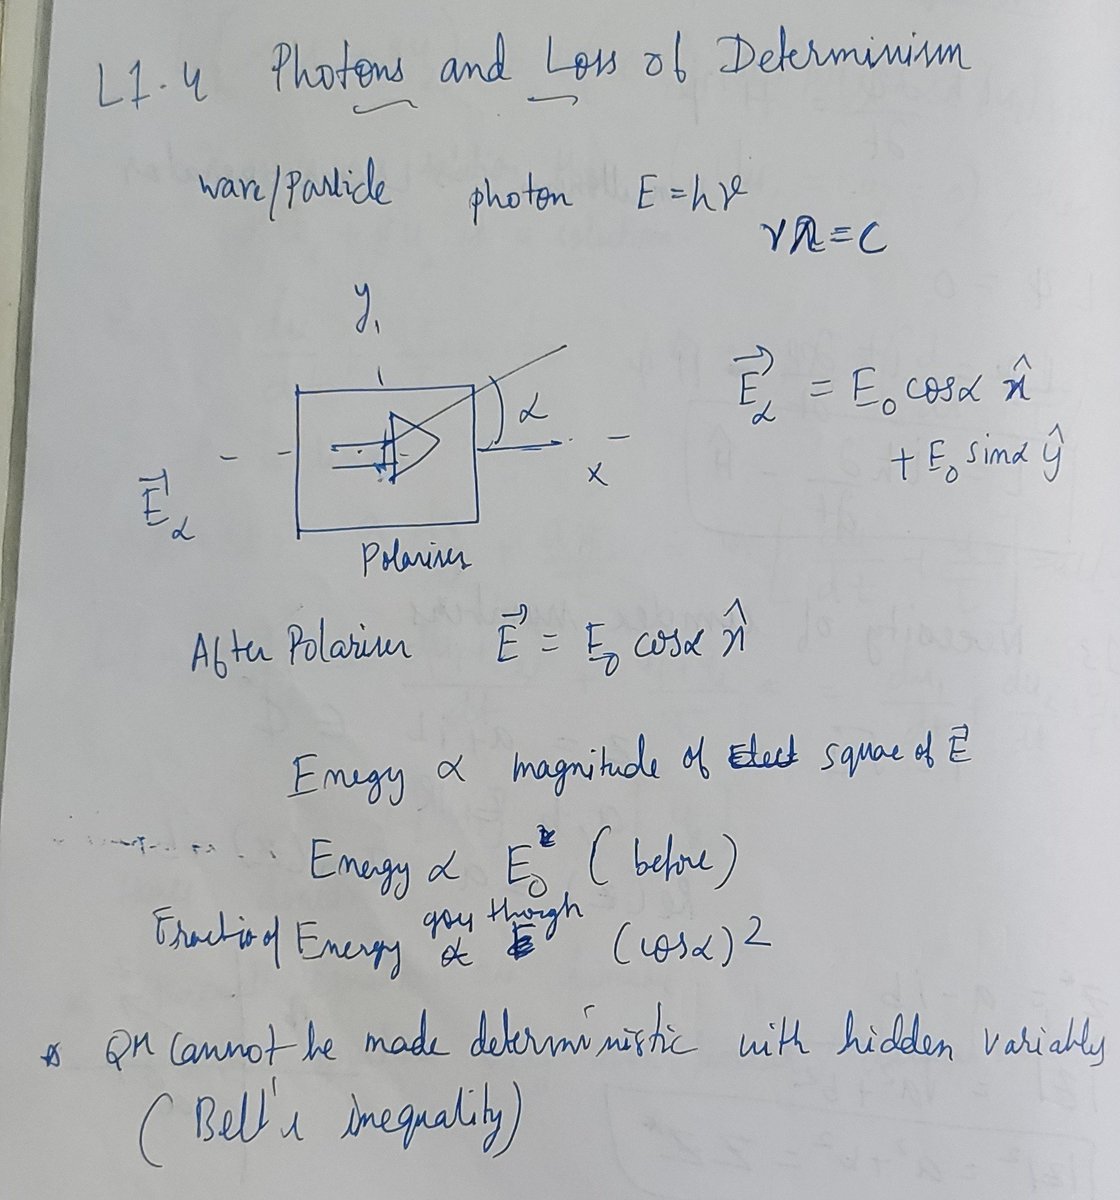 L1.4 Photons and Loss of Determinism
wave/Particle photon E = hν
νλ = c
y
α
x
E⃗α
Polariser
E⃗α = E₀ cosα x̂
+ E₀ sinα ŷ
After Polariser E⃗ = E₀ cosα x̂
Enegy α magnitude of square of E⃗
Energy α E₀² (before)
Fraction of Energy goes through (cosα)²
QM cannot be made deterministic with hidden variables
(Bell's inequality)